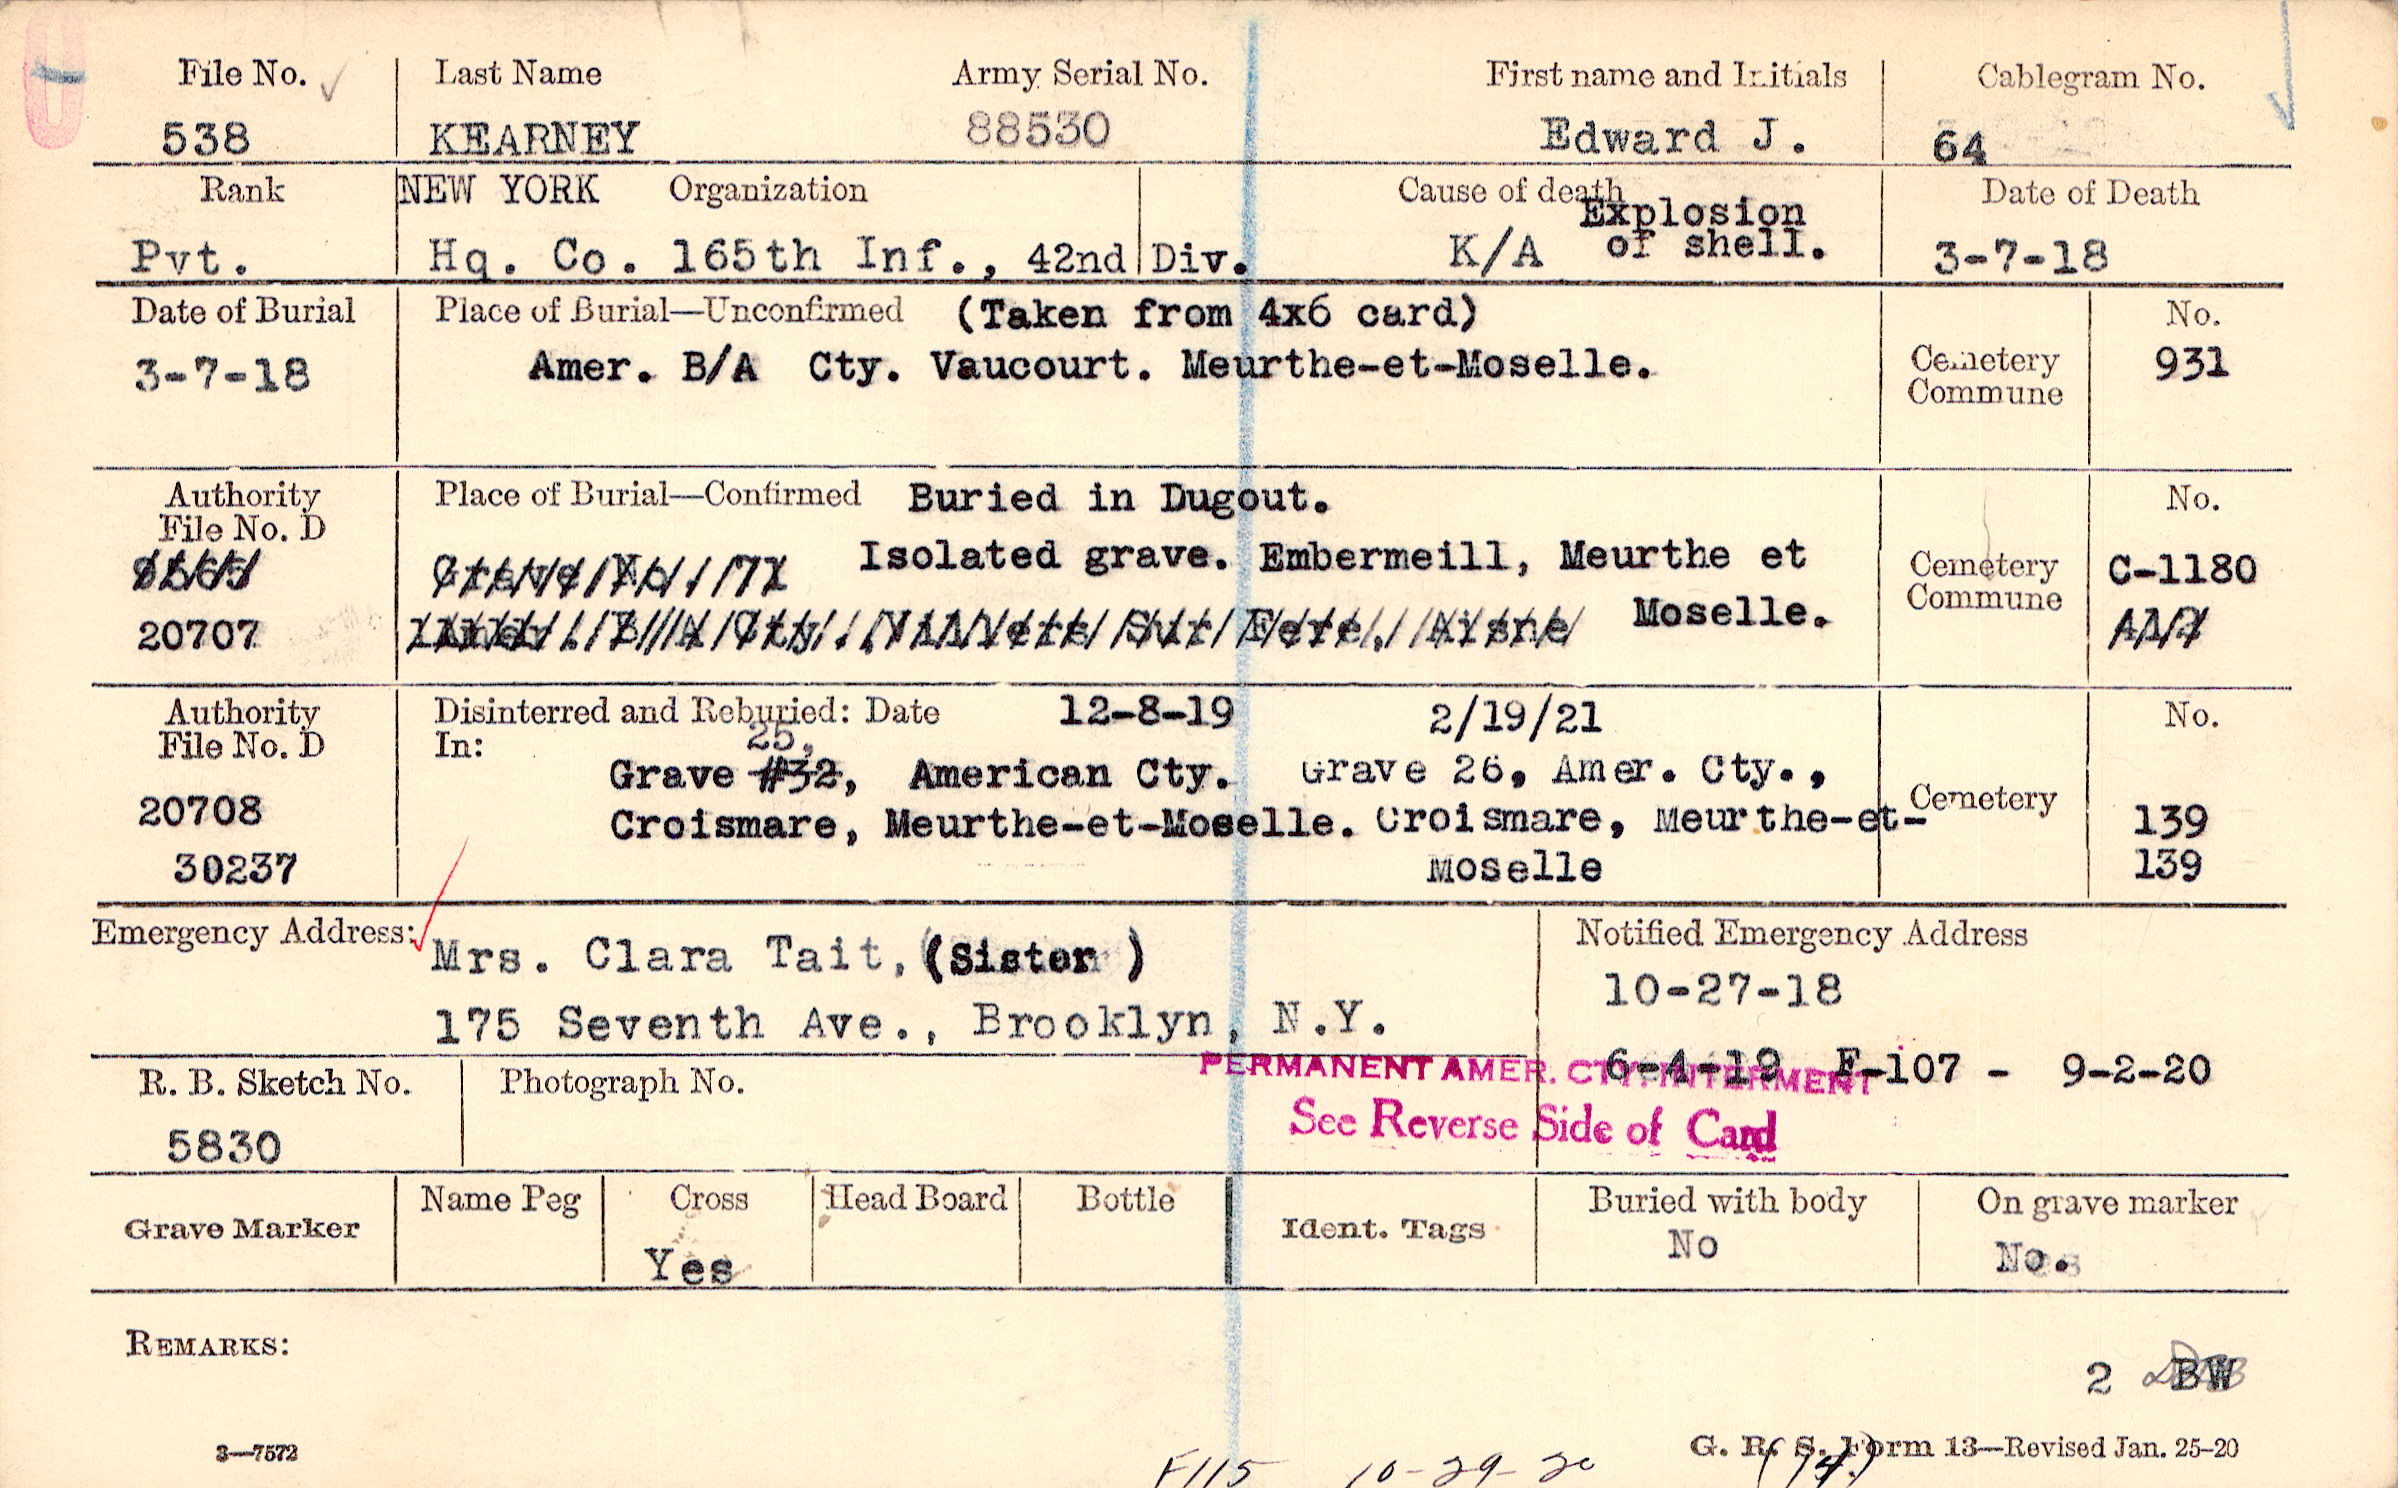 File No. Last Name Army Serial No. First name and Initials Cablegram No.
538 KEARNEY 88530 Edward J. 64
Rank NEW YORK Organization Cause of death Date of Death
Pvt. Hq. Co. 165th Inf., 42nd Div. K/A Explosion of shell. 3-7-18
Date of Burial Place of Burial—Unconfirmed (Taken from 4x6 card) No.
3-7-18 Amer. B/A Cty. Vaucourt. Meurthe-et-Moselle. Cemetery 931
Commune
Authority Place of Burial—Confirmed Buried in Dugout. No.
File No. D
Grave No. 71 Isolated grave. Embermeill, Meurthe et Cemetery C-1180
20707 Amer. B/A Cty., Villers Sur Fere, Aisne Moselle. Commune
Authority Disinterred and Reburied: Date 12-8-19 2/19/21 No.
File No. D In: 25,
Grave #32, American Cty. Grave 26, Amer. Cty.,
20708 Croismare, Meurthe-et-Moselle. Croismare, Meurthe-et- Cemetery 139
30237 Moselle 139
Emergency Address: Mrs. Clara Tait, (Sister) Notified Emergency Address
175 Seventh Ave., Brooklyn, N.Y. 10-27-18
PERMANENT AMER. CTY. INTERMENT 6-4-19 F-107 - 9-2-20
R. B. Sketch No. Photograph No.
5830 See Reverse Side of Card
Grave Marker Name Peg Cross Head Board Bottle Ident. Tags Buried with body On grave marker
Yes No No.
REMARKS:
2 BW
3—7572 G. R. S. Form 13—Revised Jan. 25-20
F115 10-29-20 (14)